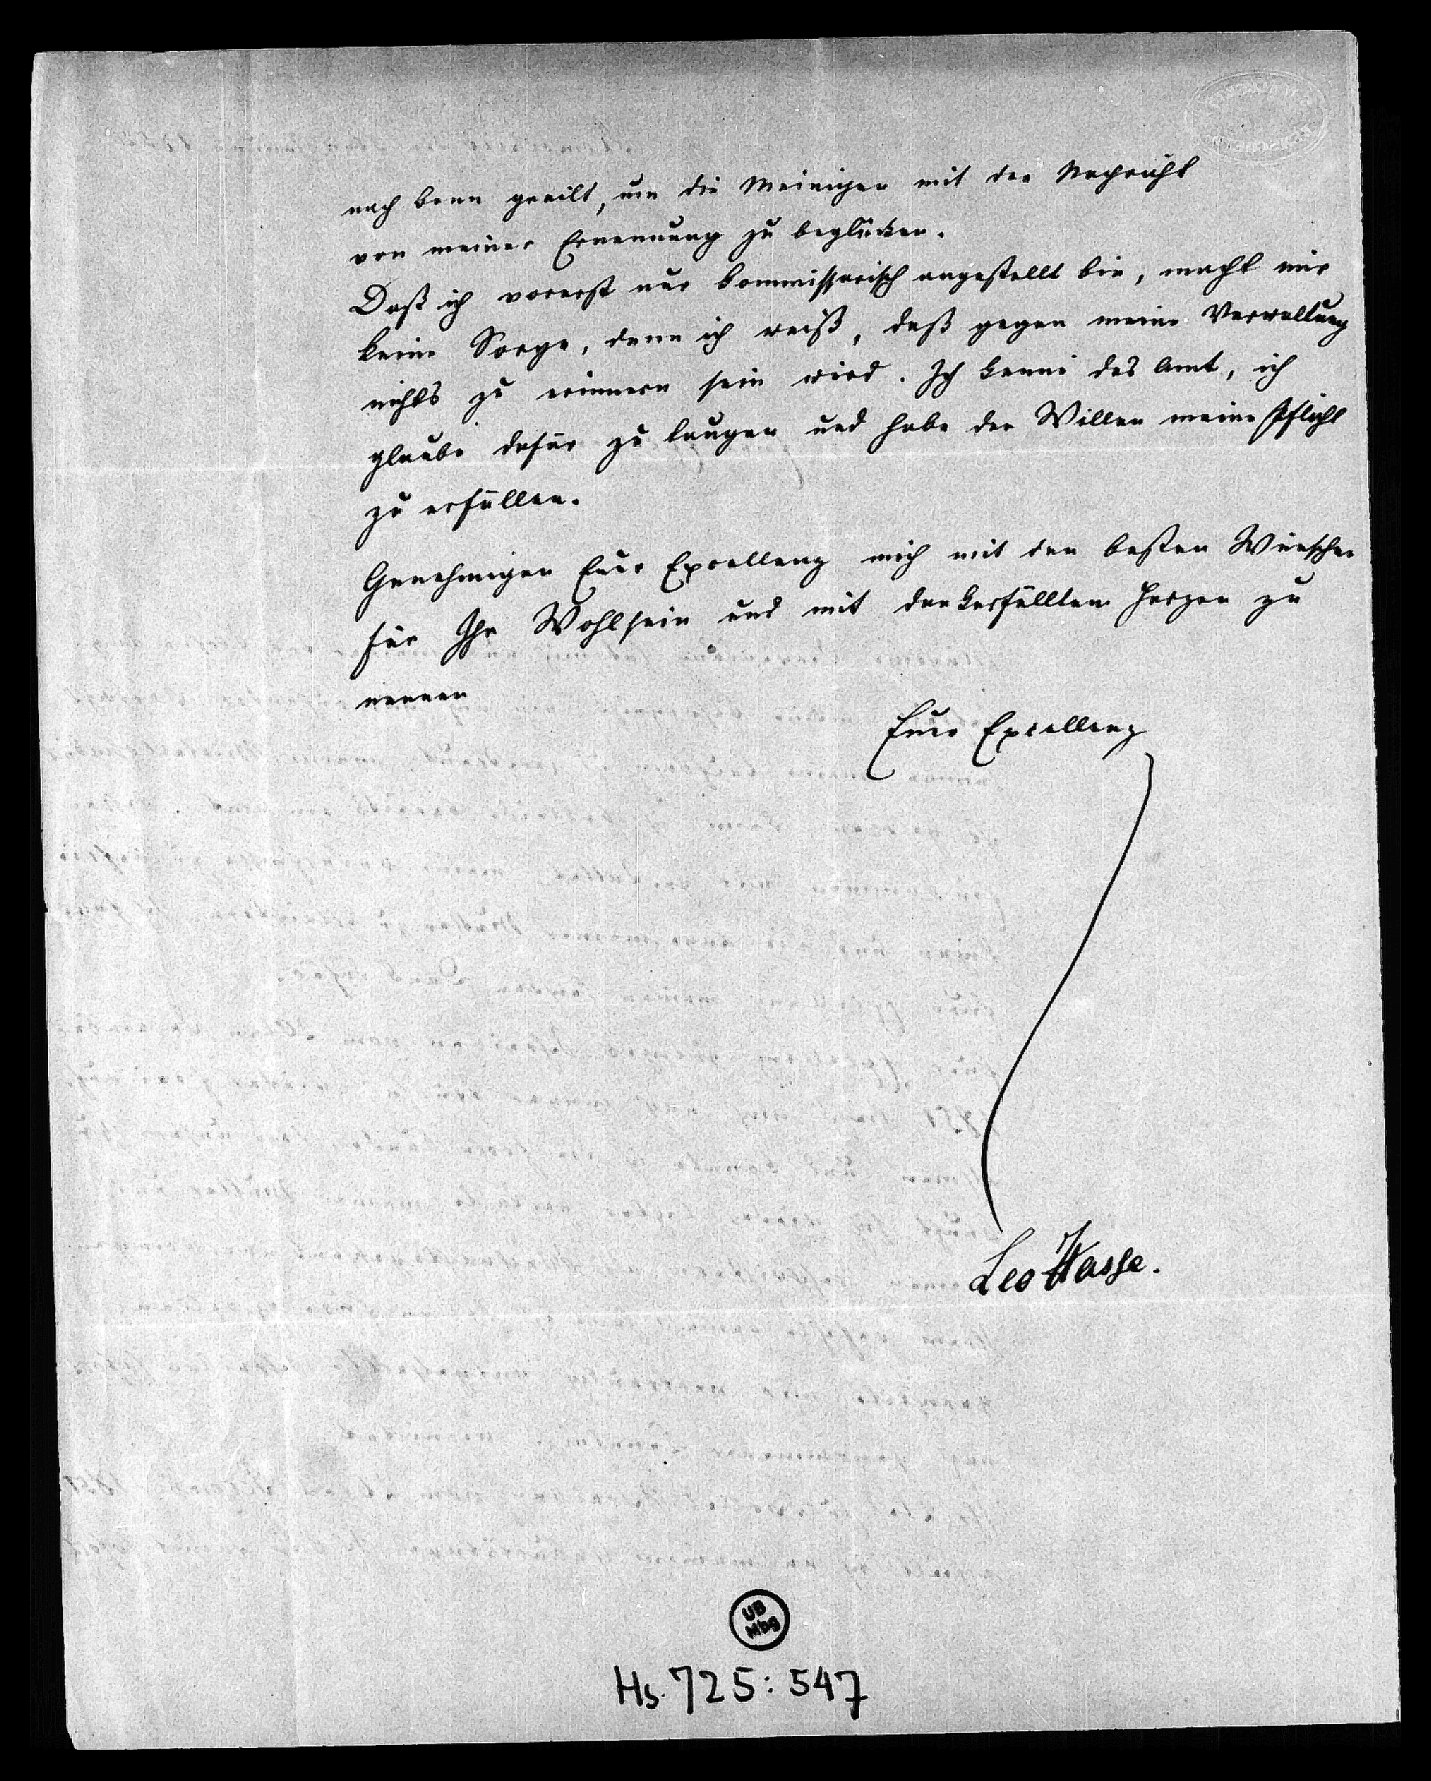 nach Bonn geeilt, um die Meinigen mit der Nachricht
von meiner Ernennung zu beglücken.
Daß ich vorerst nur kommissarisch angestellt bin, macht mir
keine Sorge, denn ich weiß, daß gegen meine Verwaltung
nichts zu erinnern sein wird. Ich kenne das Amt, ich
glaube dafür zu taugen und habe den Willen meine Pflicht
zu erfüllen.
Genehmigen Eure Excellenz mich mit den besten Wünschen
für Ihr Wohlsein und mit dankerfülltem Herzen zu
nennen
Eurer Excellenz
Leo Hasse.
UB
Mbg
Hs. 725:547